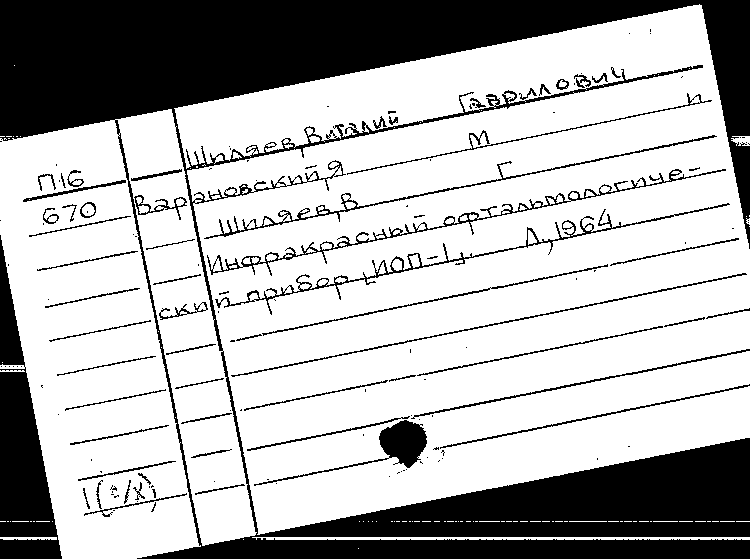 Шиляев, Виталий Гаврилович
П16 Варановский, Я М и
670 Шиляев, В Г
Инфракрасный офтальмологиче-
ский прибор „ИОП-1„. Л., 1964.